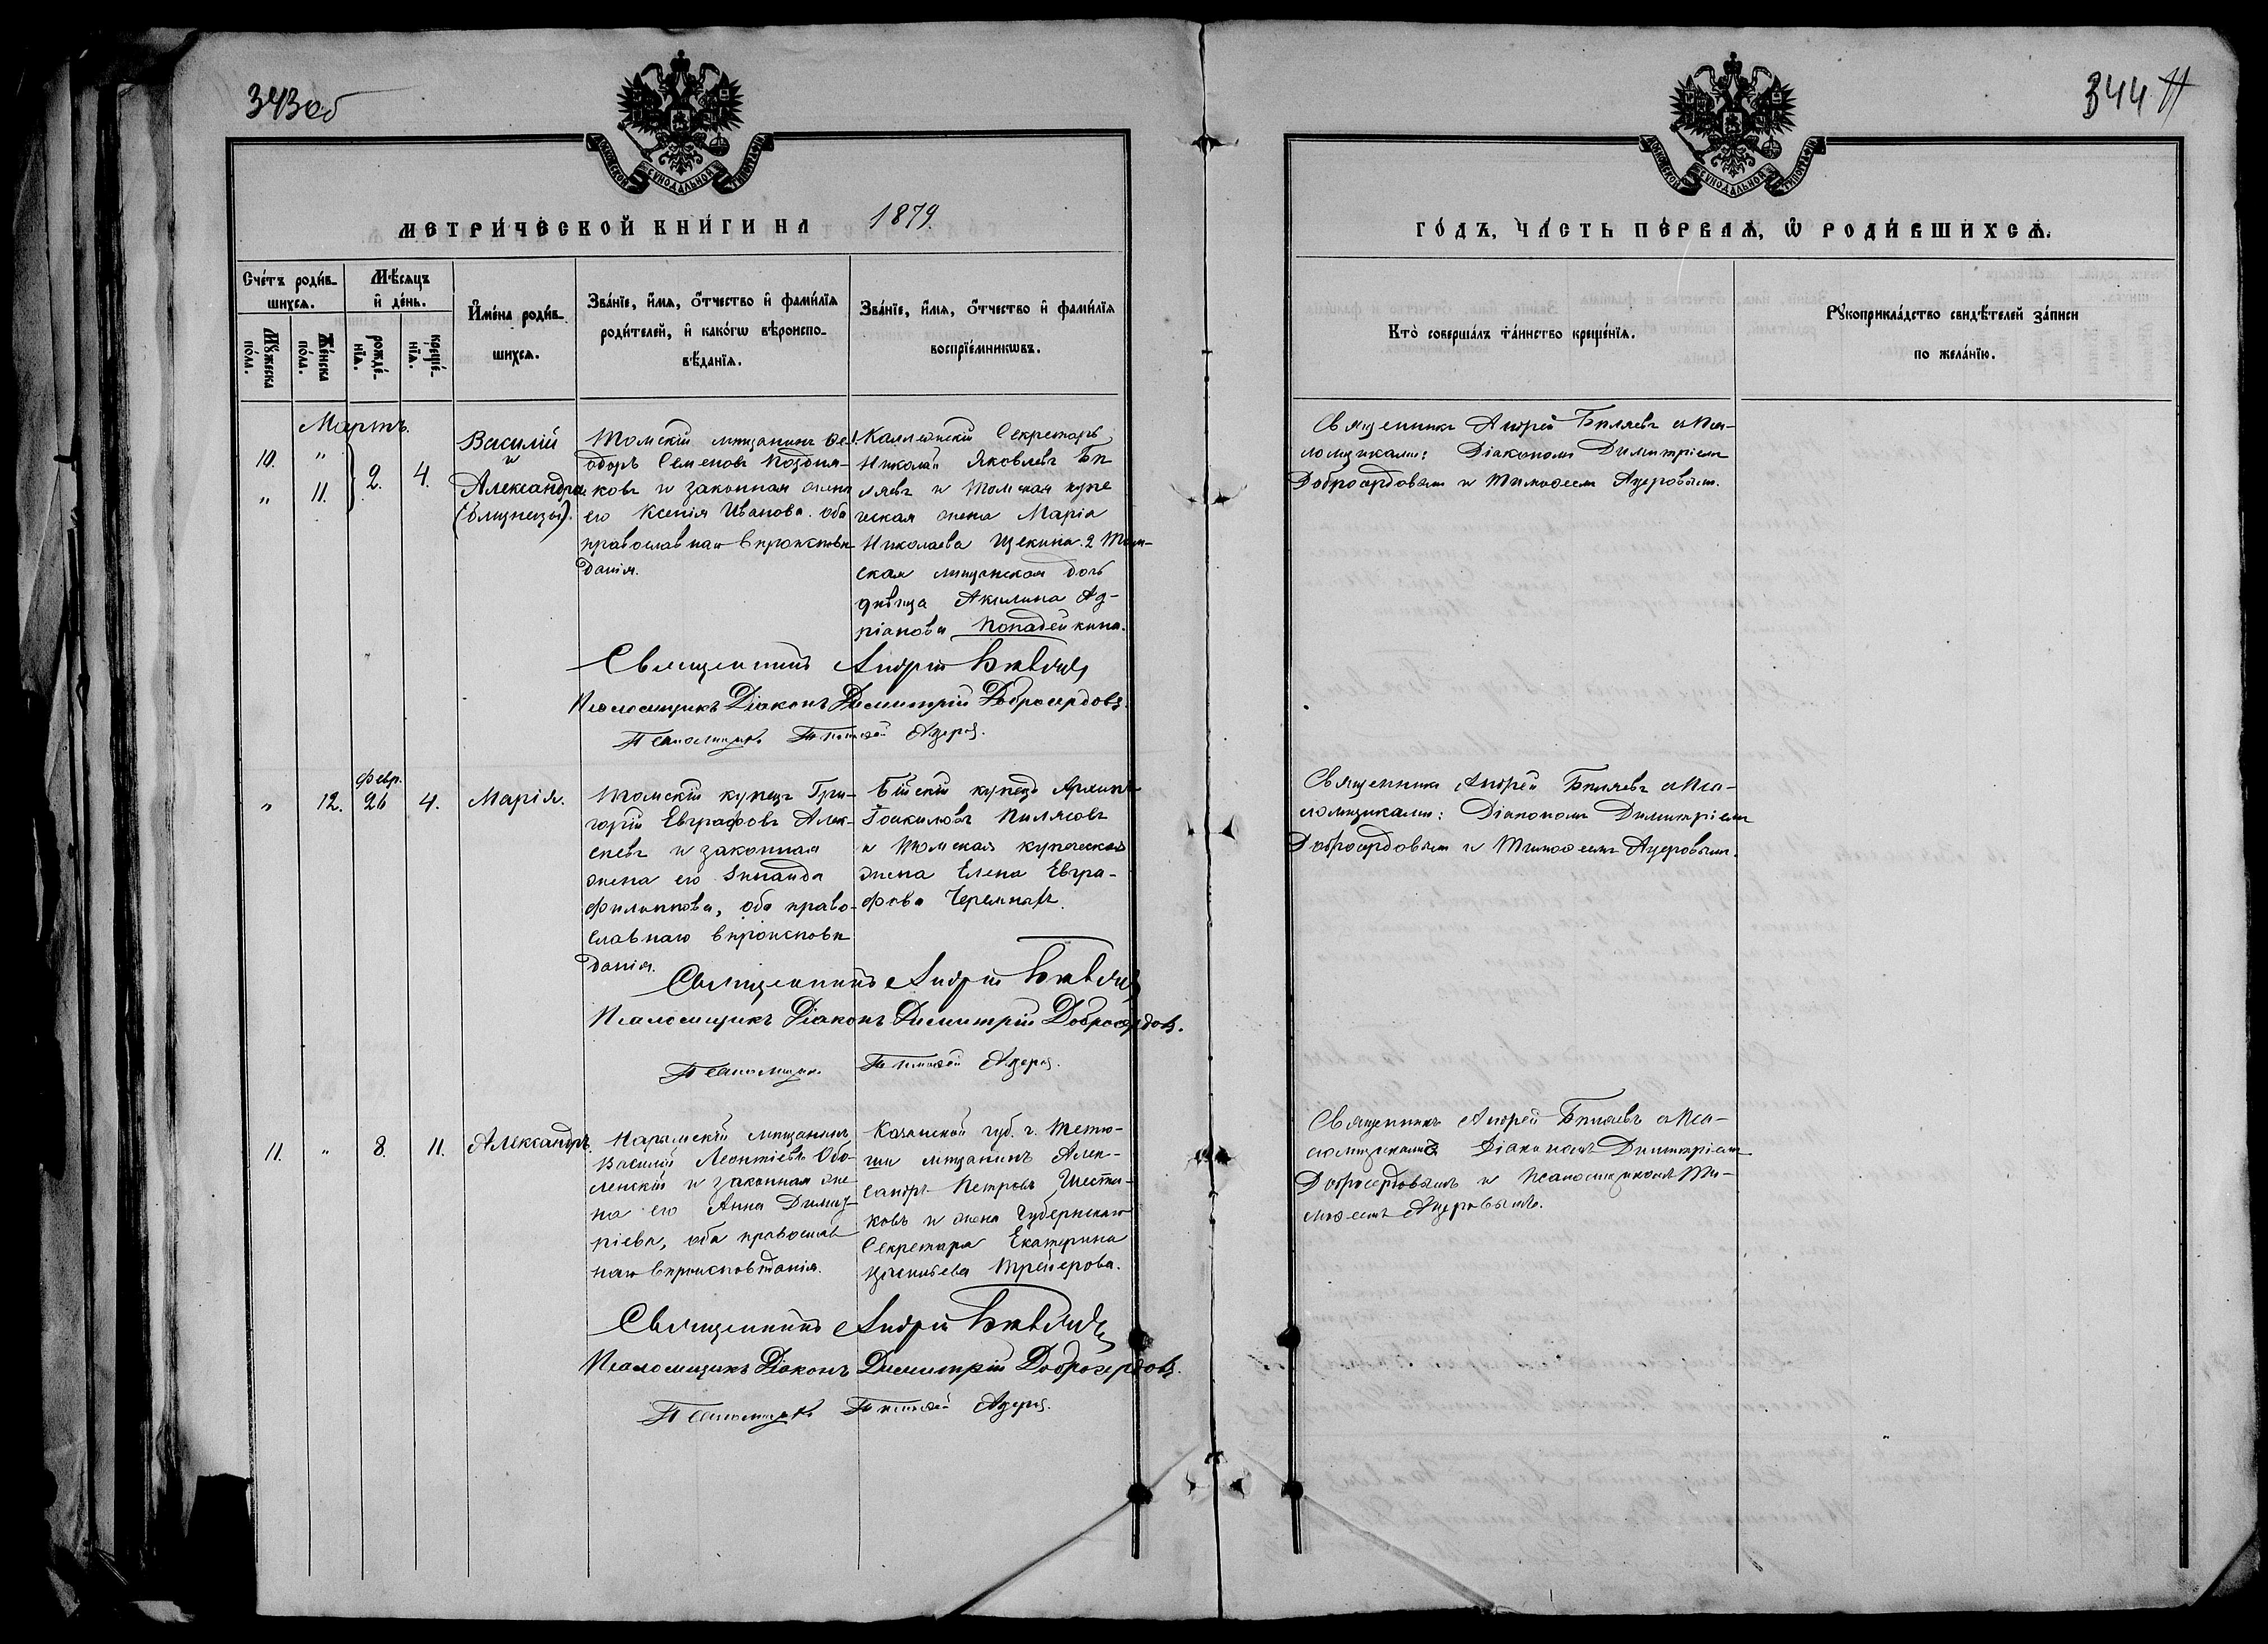 343об
МОСКОВСКОЙ СѴНОДАЛЬНОЙ ТИПОГРАФІИ
МЕТРИ́ЧЕСКОЙ КНИ́ГИ НА 1879.
Сче́тъ роди́в-
шихсѧ.
Мꙋ́жеска
по́ла.
Же́нска
по́ла.
Мѣ́сѧцъ
и҆ де́нь.
рожде́-
нїѧ.
креще́-
нїѧ.
И҆мена̀ роди́в-
шихсѧ.
Зва́нїе, и҆́мѧ, ѻ҆́тчество и҆ фами́лїѧ
роди́телей, и҆ како́гѡ вѣроиспо-
вѣ́данїѧ.
Зва́нїе, и҆́мѧ, ѻ҆́тчество и҆ фами́лїѧ
воспрїе́мникѡвъ.
Мартъ.
10. "
" 11.
2. 4.
Василій
и
Александра
(близнецы).
Томскій мѣщанинъ Ѳе-
одоръ Семеновъ Поздня-
ковъ и законная жена
его Ксенія Иванова. оба
православнаго вѣроисповѣ-
данія.
1. Коллежскій Секретарь
Николай Яковлевъ Бѣ
ляевъ и Томская купе
ческая жена Марія
Николаева Щекина. 2 Том-
ская мѣщанская дочь
дѣвица Акилина Ад-
ріанова Попадейкина.
Священникъ Андрей Бѣляевъ
Псаломщикъ Діаконъ Димитрій Добросердовъ.
Псаломщикъ Тимоѳей Азеровъ.
" 12. Февр. 26 4. Марія.
Томскій купецъ Гри-
горій Евграфовъ Алек-
сѣевъ и законная
жена его Зинаида
Филиппова, оба право-
славнаго вѣроисповѣ
данія.
Бійскій купецъ
Іоакимовъ Пилясовъ
и Томская купеческая
жена Елена Евгра-
фова
Священникъ Андрей Бѣляевъ
Псаломщикъ Діаконъ Димитрій Добросердовъ.
Псаломщикъ Тимоѳей Азеровъ.
11. " 8. 11. Александръ.
Нарымскій мѣщанинъ
Василій Леонтіевъ Обо-
ленскій и законная же-
на его Анна Димит-
ріева, оба православ
наго вѣроисповѣданія.
Казанской губ. г. Тетю-
ши мѣщанинъ Алек-
сандръ Петровъ Шести-
ковъ и жена Губернскаго
Секретаря Екатерина
Трейерова.
Священникъ Андрей Бѣляевъ
Псаломщикъ Діаконъ Димитрій Добросердовъ.
Псаломщикъ Тимоѳей Азеровъ.
344
МОСКОВСКОЙ СѴНОДАЛЬНОЙ ТИПОГРАФІИ
ГО́ДЪ, ЧА́СТЬ ПЕ́РВАѦ, Ѡ҆ РОДИ́ВШИХСѦ.
Кто̀ соверша́лъ та́инство креще́нїѧ.
Рꙋкоприкла́дство свидѣ́телей за́писи
по жела́нїю.
Священникъ Андрей Бѣляевъ съ Пса-
ломщиками: Діакономъ Димитріемъ
Добросердовымъ и Тимоѳеемъ Азеровымъ.
Священникъ Андрей Бѣляевъ съ Пса-
ломщиками: Діакономъ Димитріемъ
Добросердовымъ и Тимоѳеемъ Азеровымъ.
Священникъ Андрей Бѣляевъ съ Пса-
ломщиками Діакономъ Димитріемъ
Добросердовымъ и Псаломщикомъ Ти-
моѳеемъ Азеровымъ.